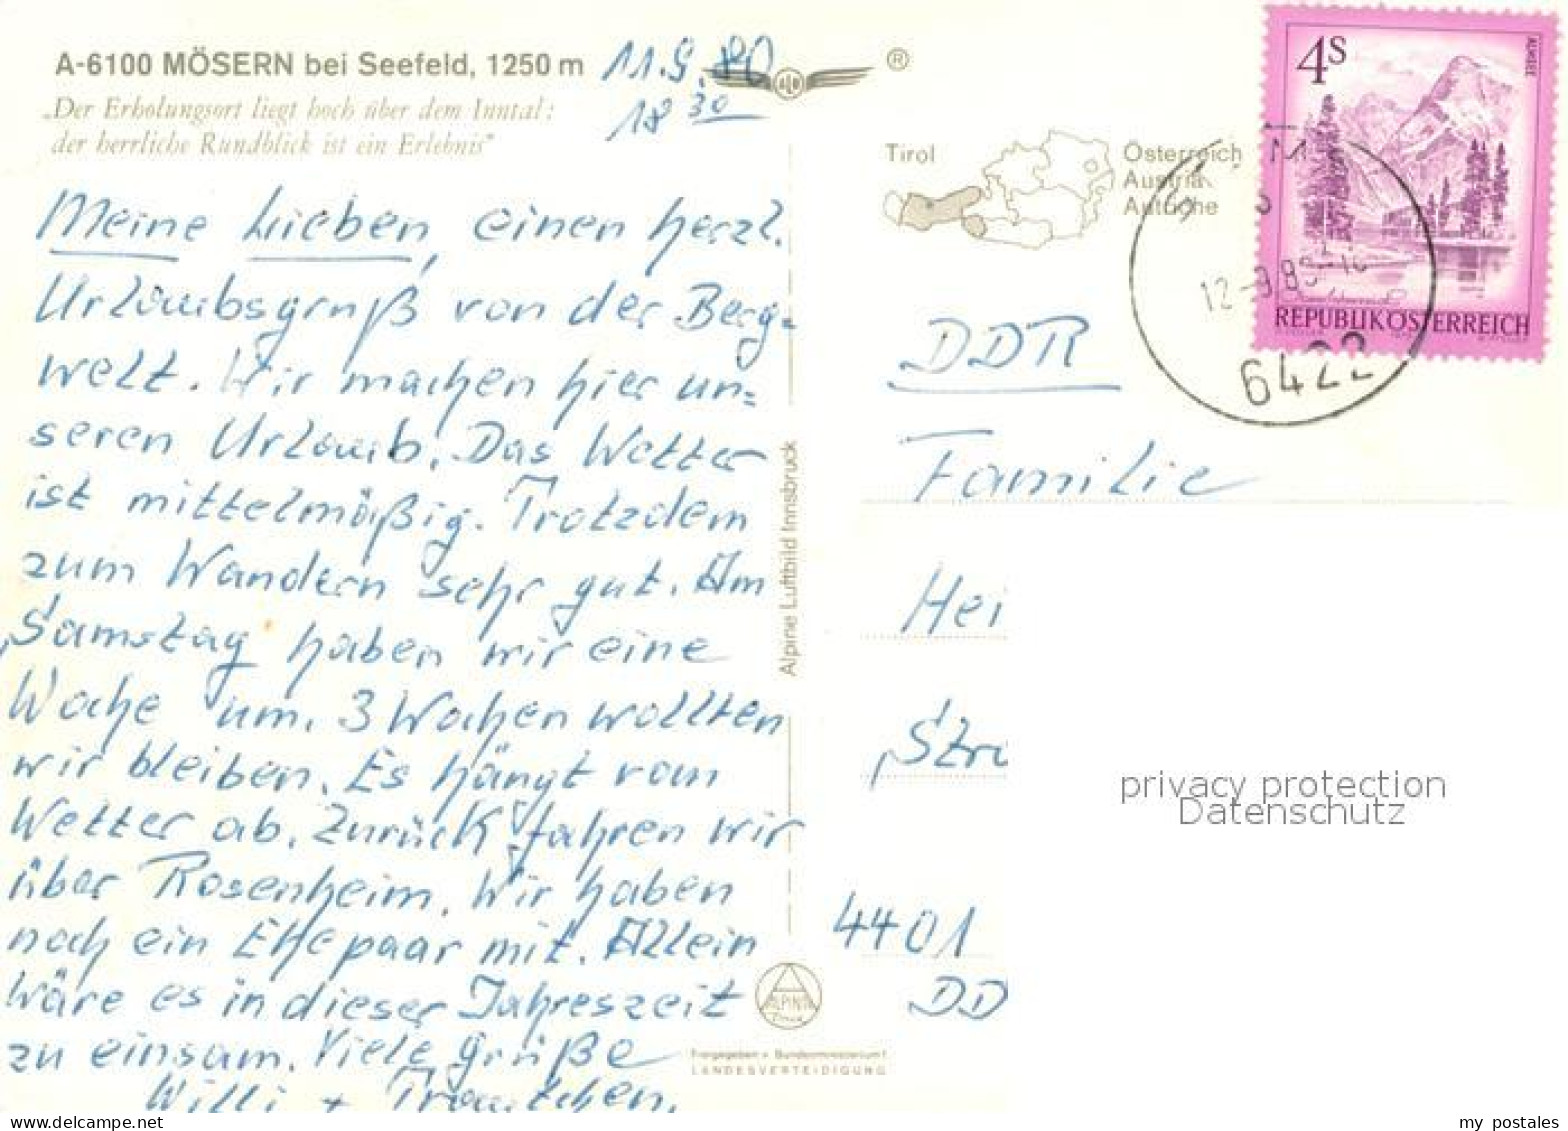 A-6100 MÖSERN bei Seefeld, 1250 m
„Der Erholungsort liegt hoch über dem Inntal;
der herrliche Rundblick ist ein Erlebnis"
11.9.80
18 30
Meine Lieben, einen herzl.
Urlaubsgruß von der Berg=
welt. Wir machen hier un=
seren Urlaub. Das Wetter
ist mittelmäßig. Trotzdem
zum Wandern sehr gut. Am
Samstag haben wir eine
Woche um. 3 Wochen wollten
wir bleiben. Es hängt vom
Wetter ab. Zurück fahren wir
über Rosenheim. Wir haben
noch ein Ehepaar mit. Allein
wäre es in dieser Jahreszeit
zu einsam. Viele Grüße
Willi + Trautchen.
Alpine Luftbild Innsbruck
ALPINA
Druck
Freigegeben v. Bundesministerium f.
LANDESVERTEIDIGUNG
®
Tirol
Österreich
Austria
Autriche
4S
ALMSEE
REPUBLIK ÖSTERREICH
12-9.80-
6422
DDR
Familie
Hei
Str
4401
DD
privacy protection
Datenschutz
delcampe.net
my_postales